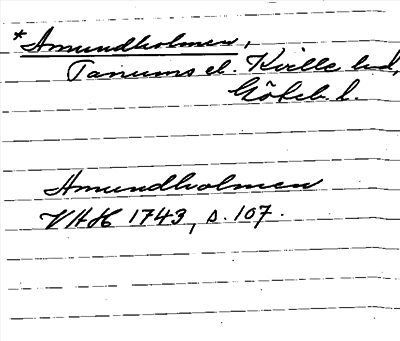 *Amundholmen,
Tanums el. Kville hd,
Göteb. l.
Amundholmen
VHH 1743, s. 107.